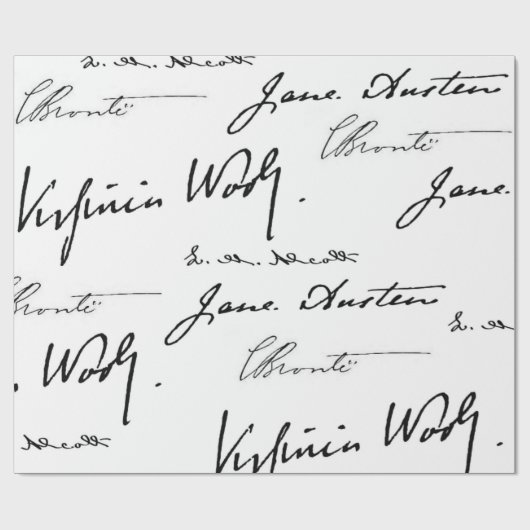 L. M. Alcott
CBrontë
Jane Austen
CBrontë
Virginia Woolf.
Jane.
L. M. Alcott
Brontë
Jane. Austen
L. M
Woolf.
CBrontë
Alcott
Virginia Woolf.